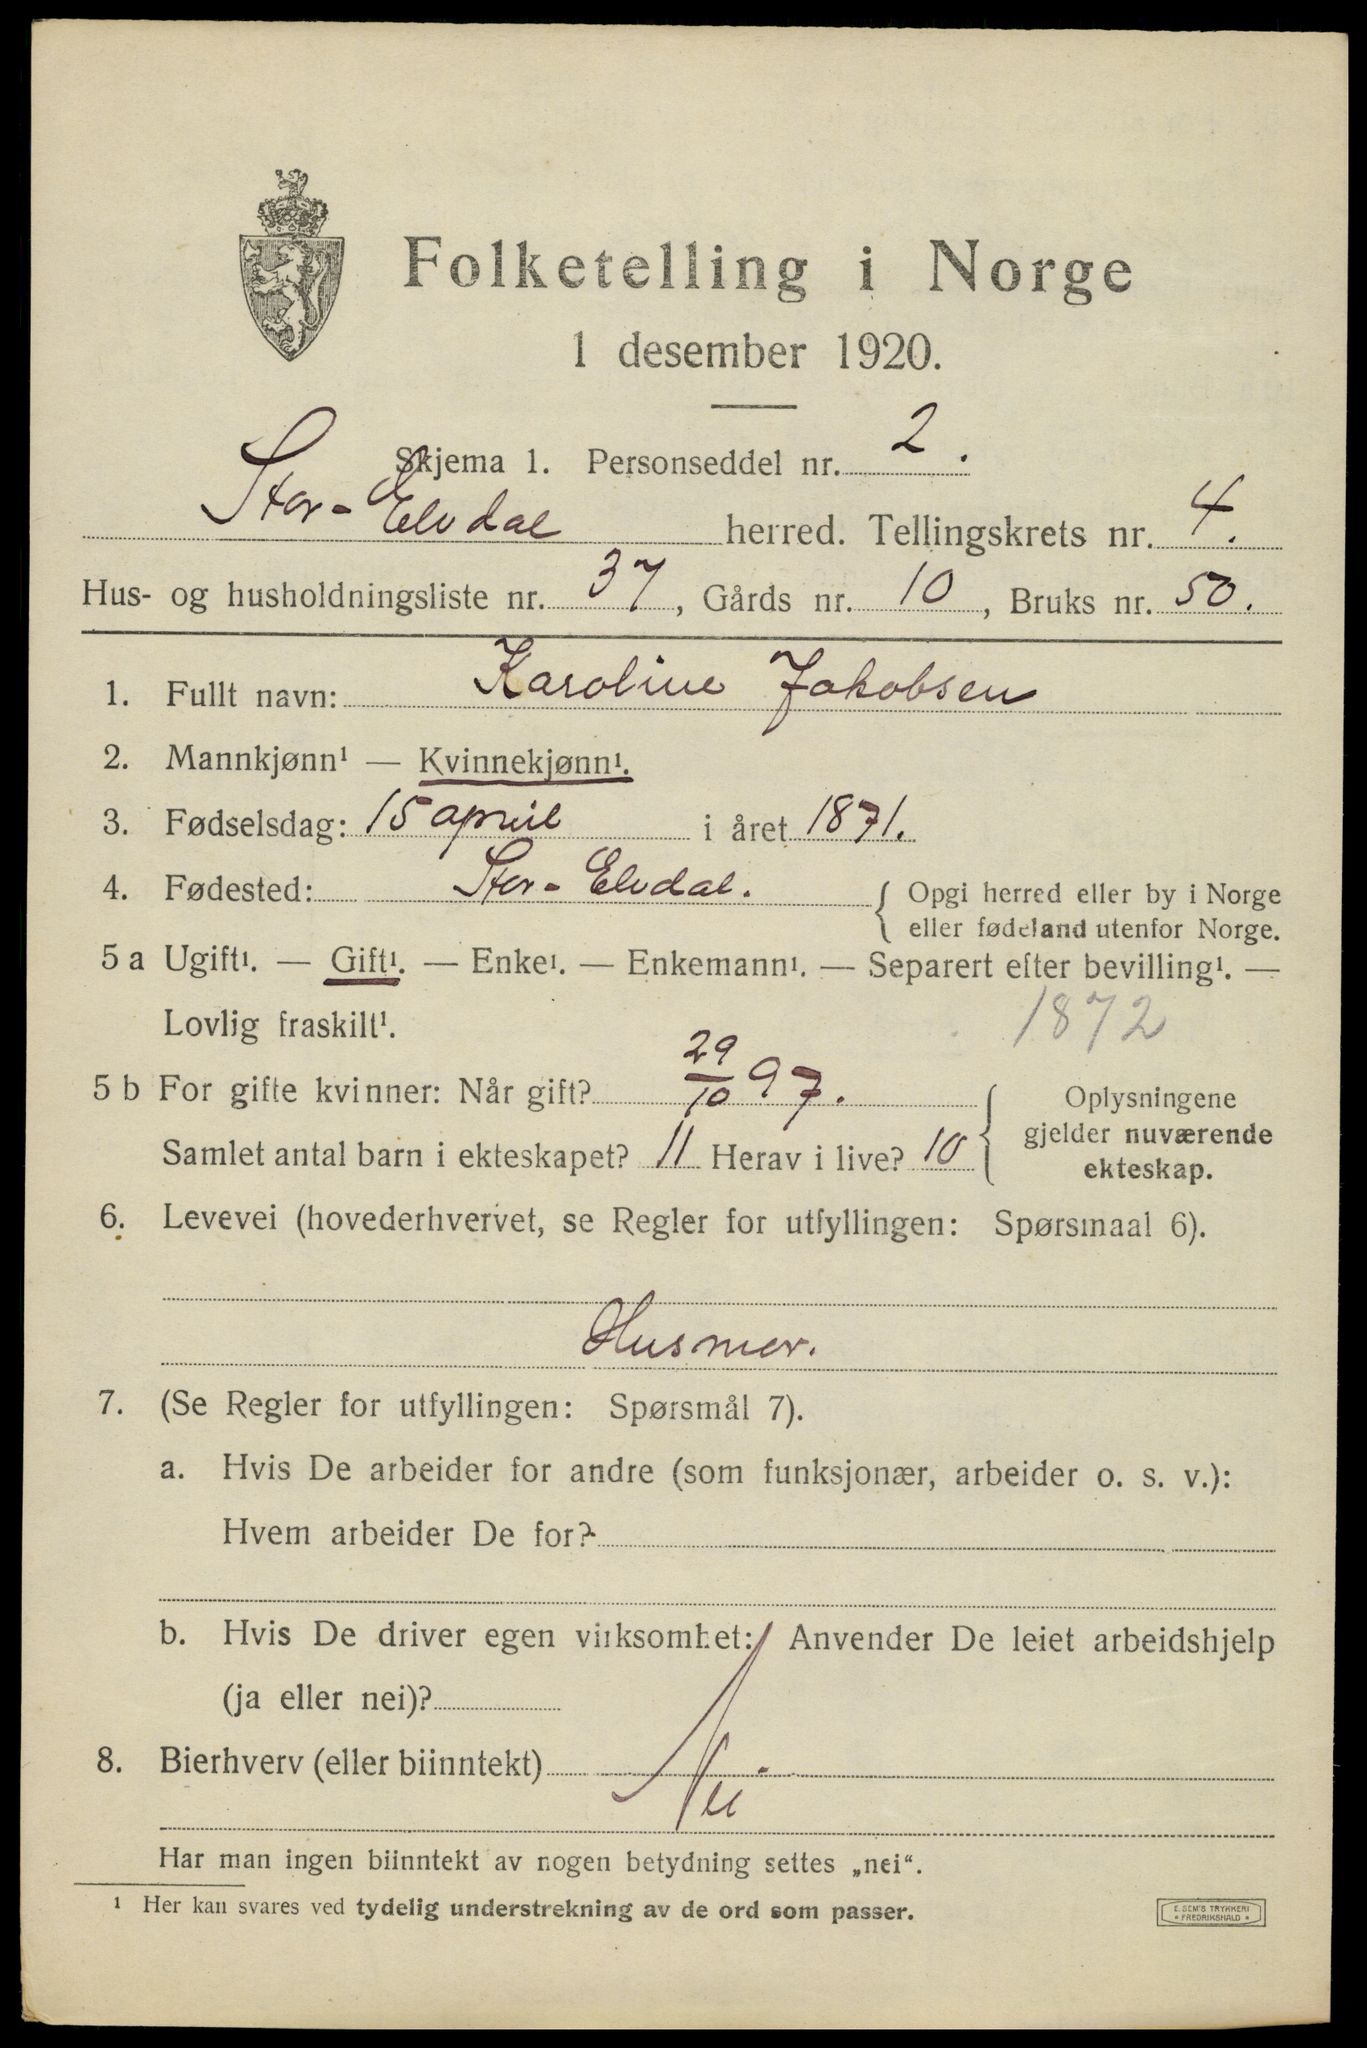 Folketelling i Norge
1 desember 1920.
Skjema 1. Personseddel nr. 2.
Stor-Elvdal herred. Tellingskrets nr. 4.
Hus- og husholdningsliste nr. 37, Gårds nr. 10, Bruks nr. 50.
1. Fullt navn: Karoline Jakobsen
2. Mannkjønn¹ — Kvinnekjønn¹.
3. Fødselsdag: 15 april i året 1871.
4. Fødested: Stor-Elvdal. { Opgi herred eller by i Norge
eller fødeland utenfor Norge.
5 a Ugift¹. — Gift¹. — Enke¹. — Enkemann¹. — Separert efter bevilling¹. —
Lovlig fraskilt¹. 1872
5 b For gifte kvinner: Når gift? 29/10 97. { Oplysningene
gjelder nuværende
Samlet antal barn i ekteskapet? 11 Herav i live? 10 ekteskap.
6. Levevei (hovederhvervet, se Regler for utfyllingen: Spørsmaal 6).
Husmor.
7. (Se Regler for utfyllingen: Spørsmål 7).
a. Hvis De arbeider for andre (som funksjonær, arbeider o. s. v.):
Hvem arbeider De for?
b. Hvis De driver egen virksomhet: Anvender De leiet arbeidshjelp
(ja eller nei)?
8. Bierhverv (eller biinntekt)
Nei
Har man ingen biinntekt av nogen betydning settes „nei“.
¹ Her kan svares ved tydelig understrekning av de ord som passer.
E. SEM'S TRYKKERI
• FREDRIKSHALD •